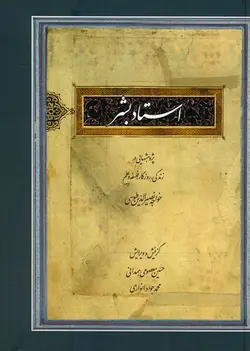 استاد بشر
پژوهشهایی در
زندگی، روزگار، فلسفه و علم
خواجه نصیرالدین طوسی
گزینش و ویرایش
حسین معصومی همدانی
محمدجواد انواری